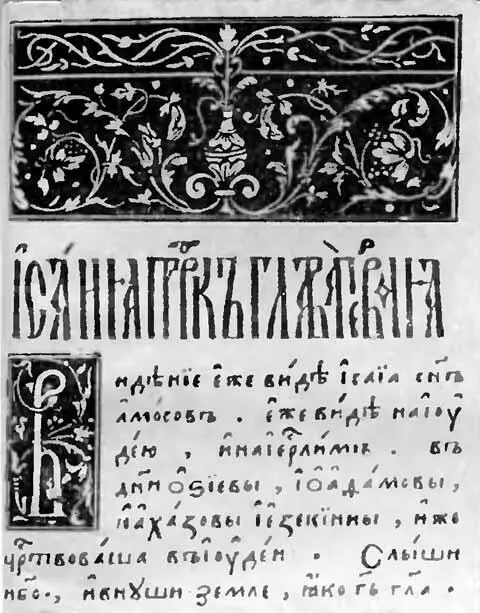 І҆СА́ИꙖ ПРⷪ҇РКЪ ГЛАВА̀ ПЕРВАꙖ
Видѣнїе є҆же ви́дѣ і҆саїа сн҃ъ
а҆мосовъ . є҆же ви́дѣ на і҆оу҆
де́ю , и҆ на і҆єрⷭ҇лимѣ . въ
дни ѻ҆ѕїевы , і҆ѡ҆а҆да́мовы ,
і҆а҆ха́зовы і҆є҆зекїины , и҆же
црⷭ҇твова́ша въ і҆оу҆де́и . Слы́ши
нб҃о , и҆ внꙋши земле , ꙗ҆ко гь҃ гл҃а .